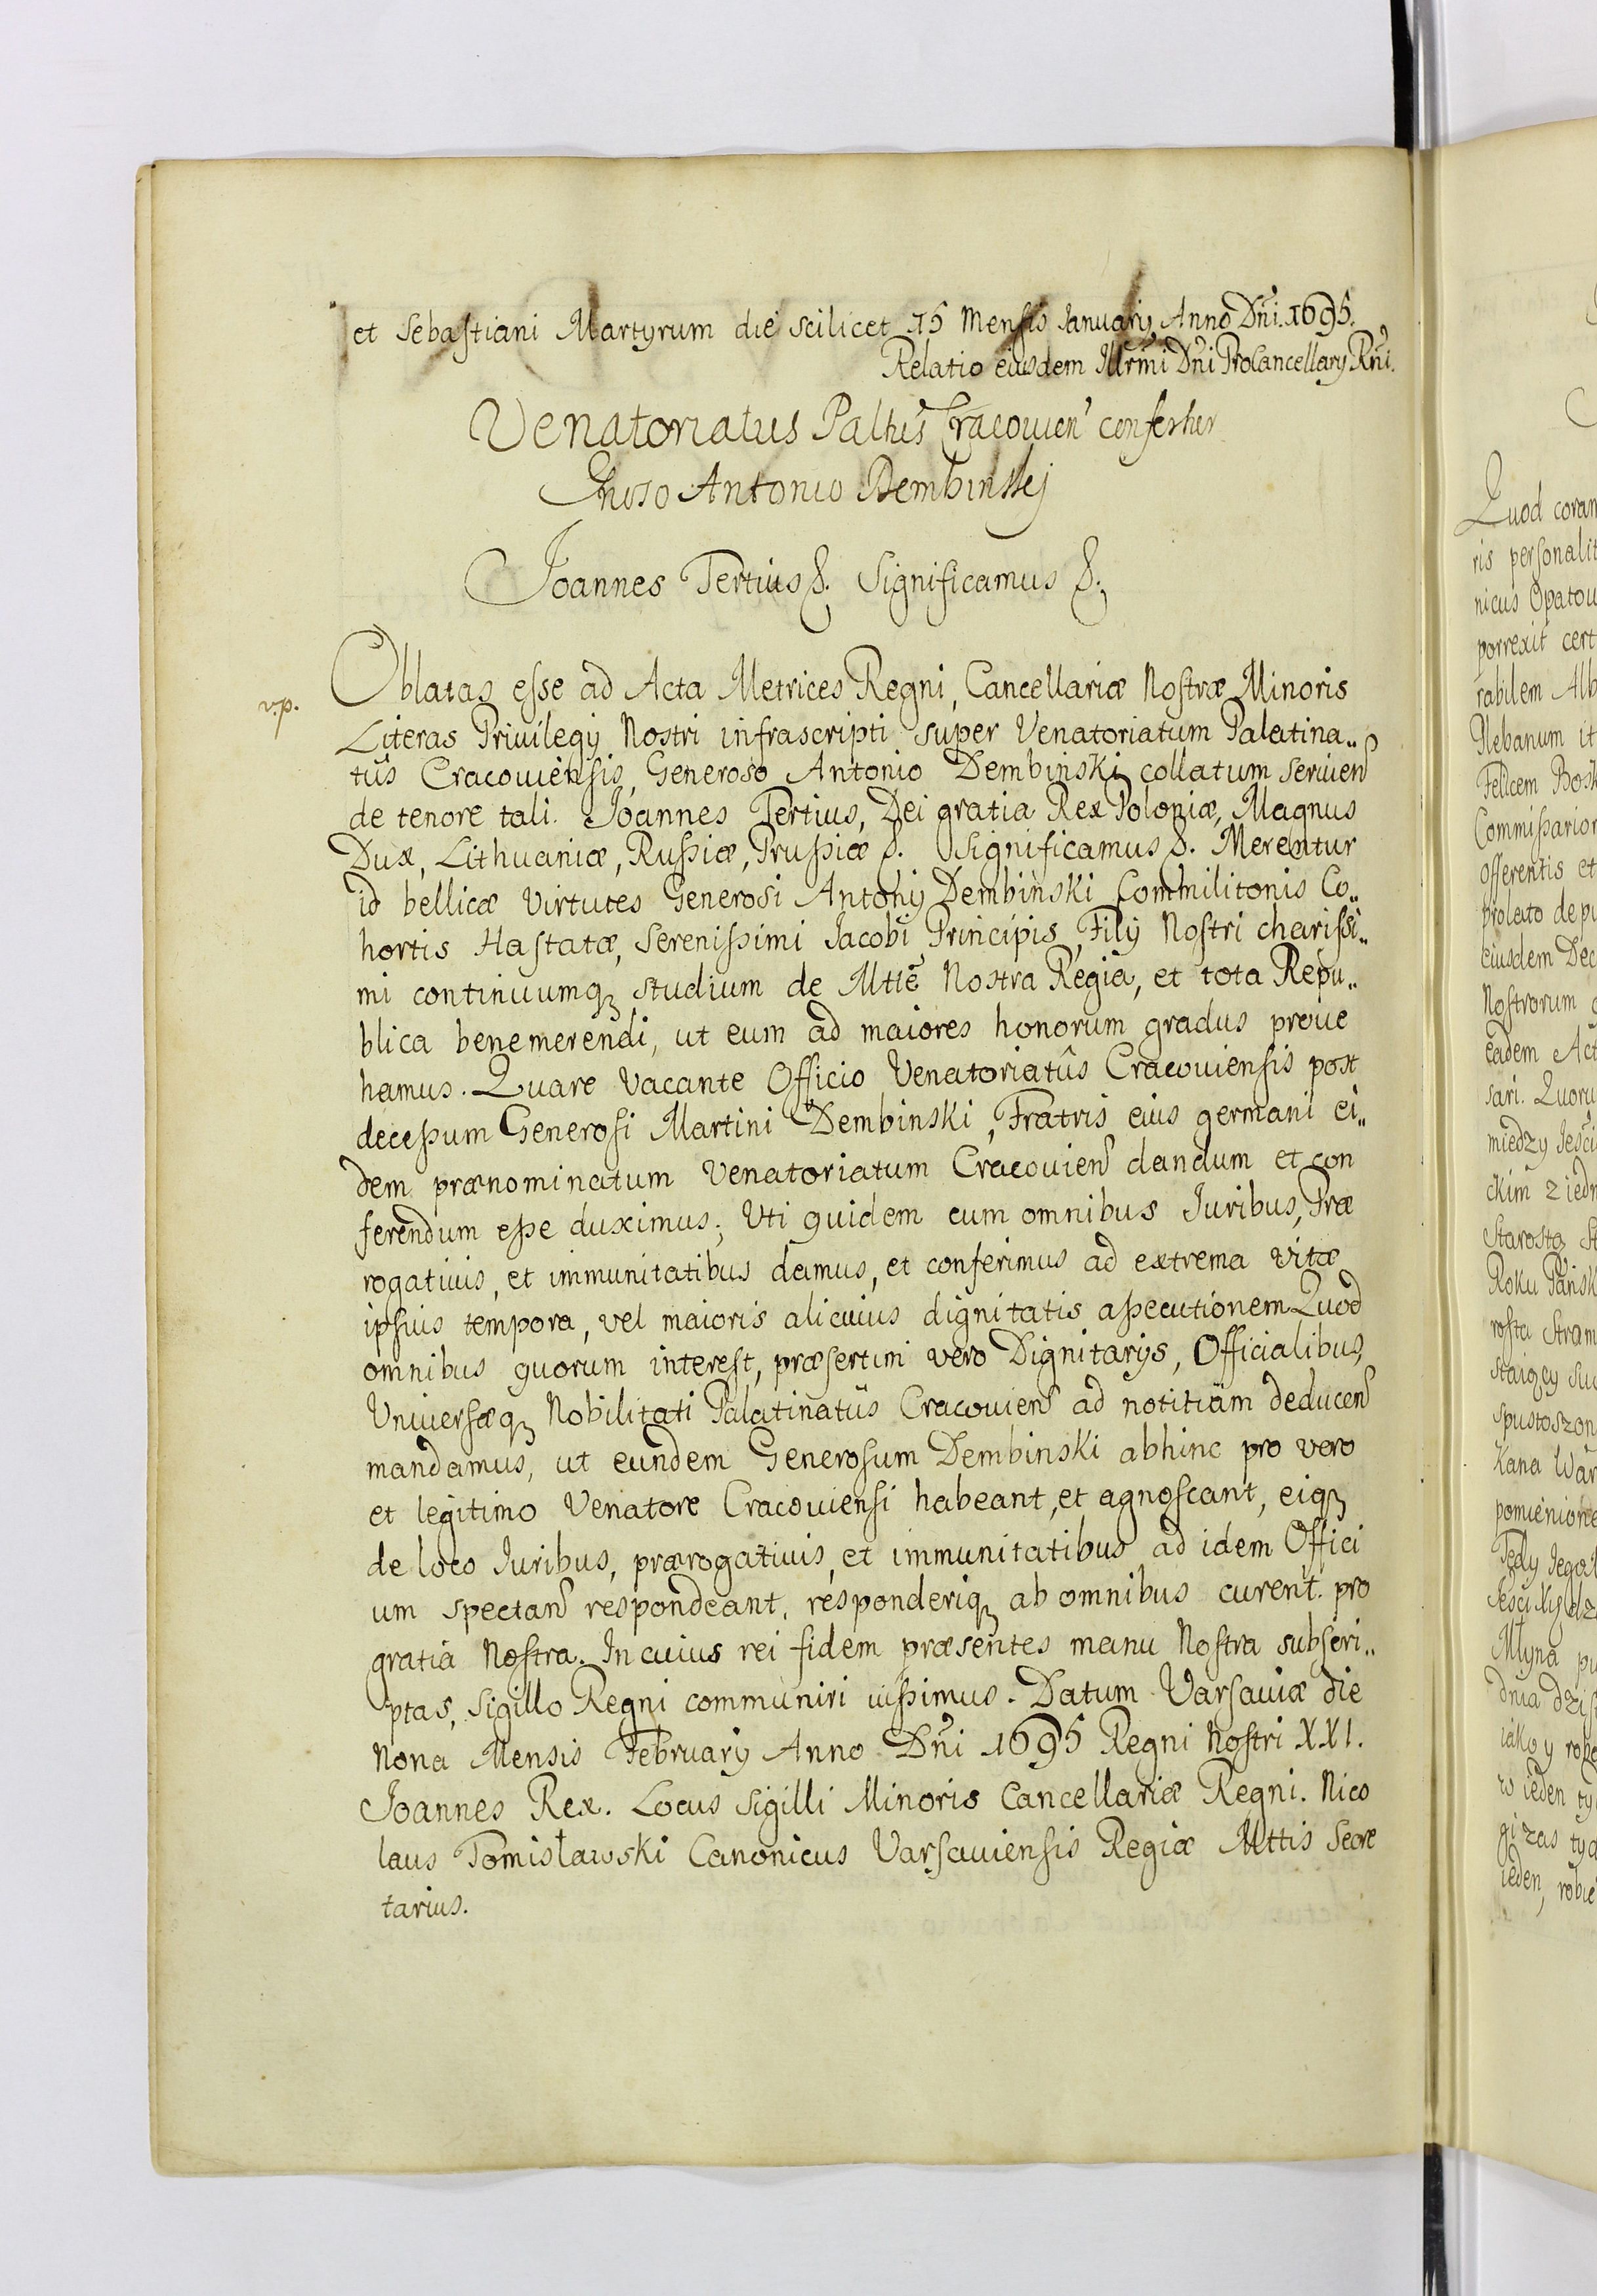 et Sebastiani Martyrum die scilicet 15 Mensis Ianuarij Anno Dñi. 1695.
Relatio eiusdem Illrmi Dñi ProCancellarij Rñi.
Venatoriatus Paltus Cracouien confertur
Gnoso Antonio Dembinskj
Joannes Tertius &. Significamus &.
v.p.
Oblatas esse ad Acta Metrices Regni, Cancellariæ Nostræ Minoris
Literas Priuilegij Nostri infrascripti super Venatoriatum Palatina„
tus Cracouiensis, Generoso Antonio Dembinski collatum seruien
de tenore tali. Joannes Tertius, Dei gratia Rex Poloniæ, Magnus
Dux, Lithuaniæ, Russiæ, Prussiæ &. Significamus &. Merentur
id bellicæ virtutes Generosi Antonij Dembinski Commilitonis Co„
hortis Hastatæ, Serenissimi Jacobi Principis, Filij Nostri charissi„
mi continuumq studium de Mtte Nostra Regia, et tota Repu„
blica benemerendi, ut eum ad maiores honorum gradus proue
hamus. Quare vacante Officio Venatoriatûs Cracouiensis post
decessum Generosi Martini Dembinski, Fratris eius germani ei„
dem prænominatum Venatoriatum Cracouien dandum et con
ferendum esse duximus; Uti quidem cum omnibus Iuribus, Præ
rogatiuis, et immunitatibus damus, et conferimus ad extrema vitæ
ipsius tempora, vel maioris alicuius dignitatis assecutionem. Quod
omnibus quorum interest, præsertim vero Dignitarijs, Officialibus,
Uniuersæq Nobilitati Palatinatûs Cracouien ad notitiam deducen
mandamus, ut eundem Generosum Dembinski abhinc pro vero
et legitimo Venatore Cracouiensi habeant, et agnoscant, eiq
de loco Iuribus, prærogatiuis, et immunitatibus ad idem Offici
um spectan respondeant, responderiq ab omnibus curent. pro
gratia Nostra. In cuius rei fidem præsentes manu Nostra subscri„
ptas, sigillo Regni communiri iussimus. Datum Varsauiæ die
Nona Mensis February Anno Dñi 1695 Regni Nostri XXI.
Joannes Rex. Locus sigilli Minoris Cancellariæ Regni. Nico
laus Tomisławski Canonicus Varsauiensis Regiæ Mttis Secre
tarius.
Quod coram
ris personalit
nicus Opatou
porrexit cert
rabilem Alb
Plebanum it
Felicem Bosk
Commissarior
offerentis et
prolato depu
eiusdem Dec
Nostrorum
eadem Act
sari. Quoru
miedzy Ieści
ckim z iedn
Starostą St
Roku Pańsk
rosta Stram
spustoszon
Kana War
pomienione
Młyna pu
dnia dzis
iako y robo
w ieden ty
ieden, robie